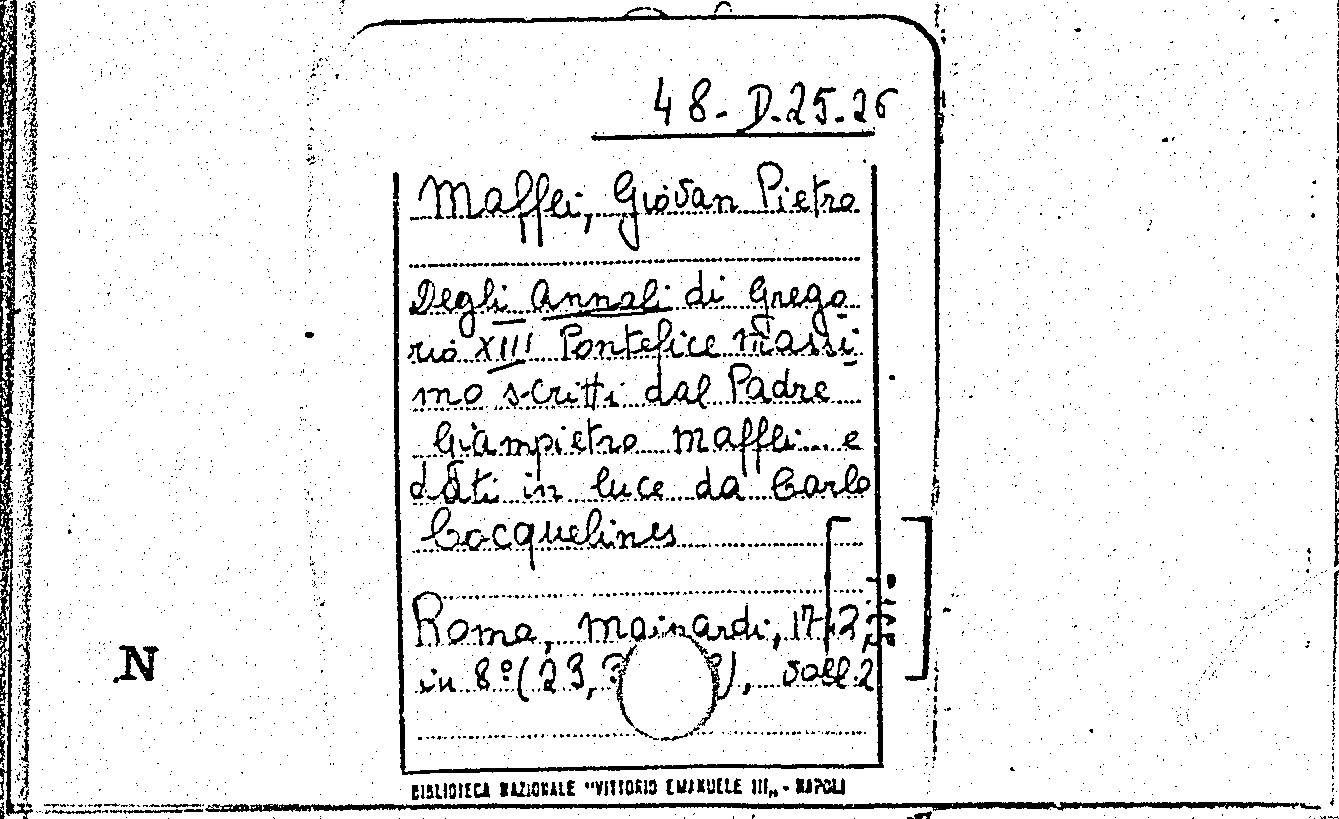 48-D.25-26
Maffei, Giovan Pietro
Degli Annali di Grego
rio XIII Pontefice Massi
mo scritti dal Padre
Giampietro Maffei... e
dati in luce da Carlo
Cocquelines
Roma, Mainardi,
in 8º (23, voll. 2
N
BIBLIOTECA NAZIONALE "VITTORIO EMANUELE III" - NAPOLI